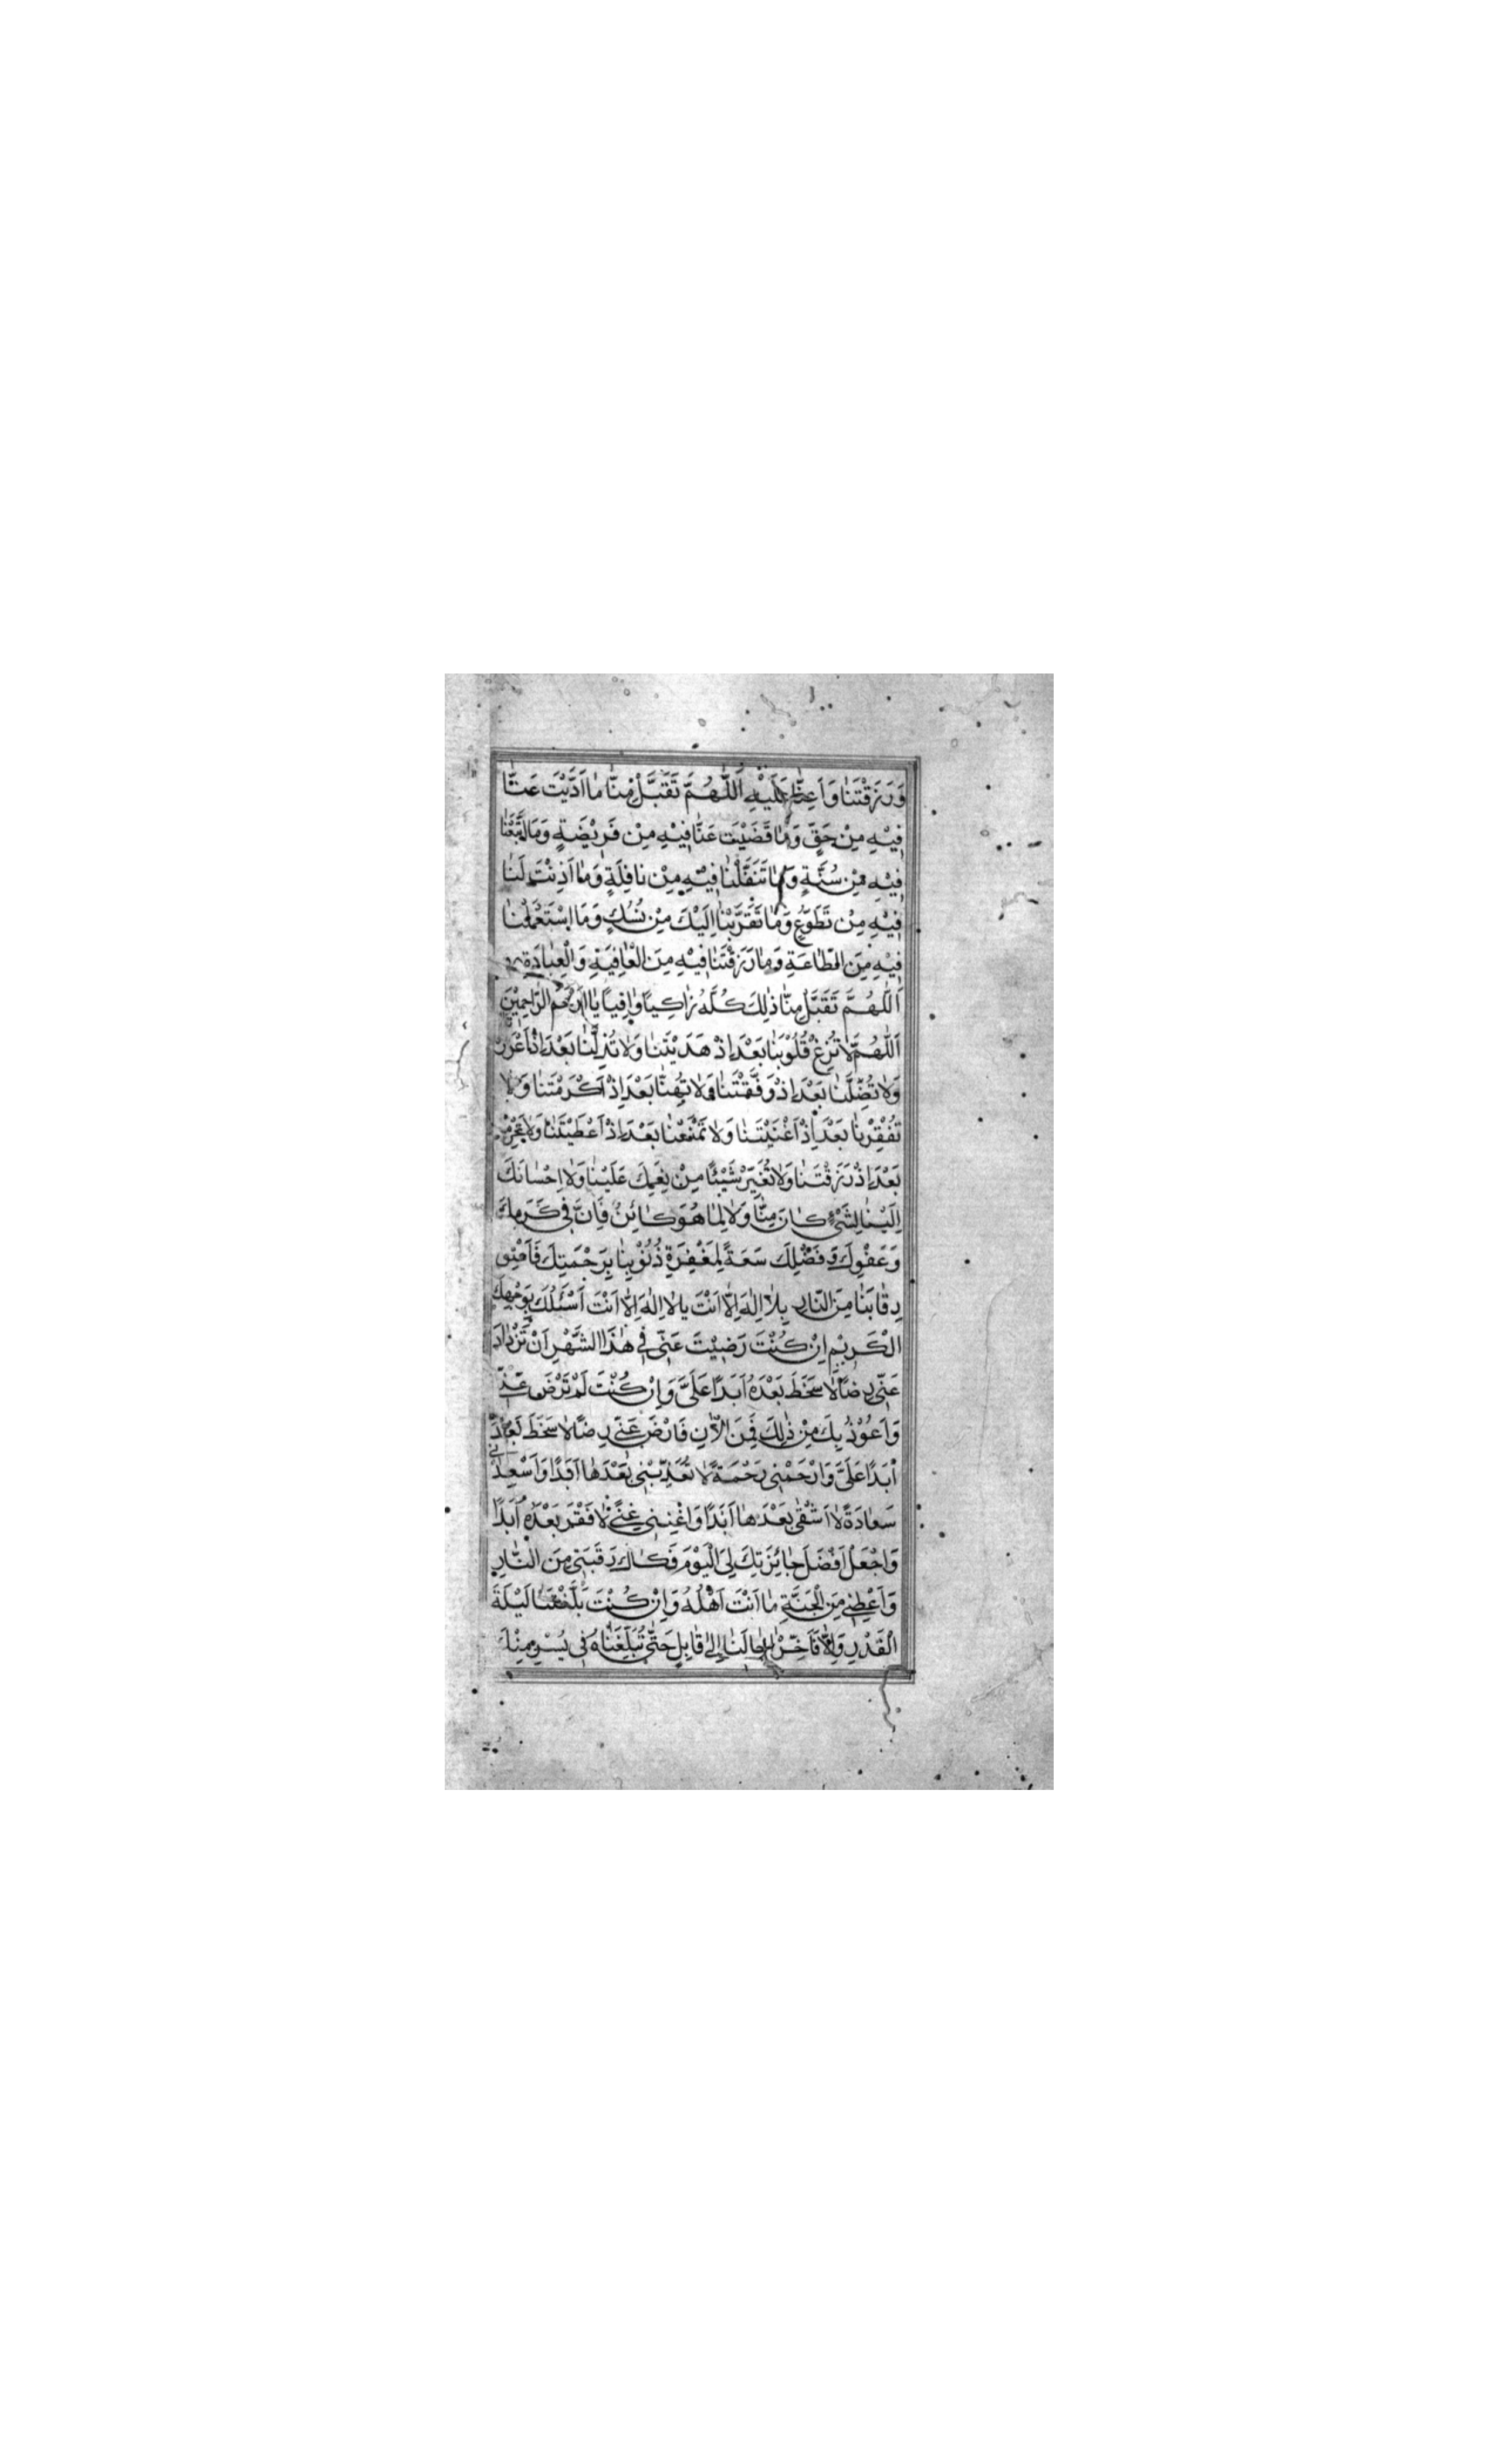 وَرَزَقْتَنَا وَاَعِنَّا عَلَيْهِ اَللّٰهُمَّ تَقَبَّلْ مِنَّا مَا اَدَّيْتَ عَنَّا
فِيْهِ مِنْ حَقٍّ وَمَا قَضَيْتَ عَنَّا فِيْهِ مِنْ فَرِيْضَةٍ وَمَا
فِيْهِ مِنْ سُنَّةٍ وَمَا تَنَفَّلْنَا فِيْهِ مِنْ نَافِلَةٍ وَمَا اَذِنْتَ لَنَا
فِيْهِ مِنْ تَطَوُّعٍ وَمَا تَقَرَّبْنَا اِلَيْكَ مِنْ نُسُكٍ وَمَا اسْتَعْمَلْتَنَا
فِيْهِ مِنَ الطَّاعَةِ وَمَا رَزَقْتَنَا فِيْهِ مِنَ الْعَافِيَةِ وَالْعِبَادَةِ
اَللّٰهُمَّ تَقَبَّلْ مِنَّا ذٰلِكَ كُلَّهُ زَاكِيًا وَافِيًا يَا اَرْحَمَ الرَّاحِمِيْنَ
اَللّٰهُمَّ لَا تُزِغْ قُلُوْبَنَا بَعْدَ اِذْ هَدَيْتَنَا وَلَا تُذِلَّنَا بَعْدَ اِذْ اَعْزَزْ
وَلَا تُضِلَّنَا بَعْدَ اِذْ وَفَّقْتَنَا وَلَا تُهِنَّا بَعْدَ اِذْ اَكْرَمْتَنَا وَلَا
تُفْقِرْنَا بَعْدَ اِذْ اَغْنَيْتَنَا وَلَا تَمْنَعْنَا بَعْدَ اِذْ اَعْطَيْتَنَا وَلَا تَحْرِمْنَا
بَعْدَ اِذْ رَزَقْتَنَا وَلَا تُغَيِّرْ شَيْئًا مِنْ نِعَمِكَ عَلَيْنَا وَلَا اِحْسَانَكَ
اِلَيْنَا لِشَيْءٍ كَانَ مِنَّا وَلَا لِمَا هُوَ كَائِنٌ فَاِنَّ فِيْ كَرَمِكَ
وَعَفْوِكَ وَفَضْلِكَ سَعَةً لِمَغْفِرَةِ ذُنُوْبِنَا بِرَحْمَتِكَ فَاَعْتِقْ
رِقَابَنَا مِنَ النَّارِ بِلَا اِلٰهَ اِلَّا اَنْتَ يَا لَا اِلٰهَ اِلَّا اَنْتَ اَسْئَلُكَ بِوَجْهِكَ
الْكَرِيْمِ اِنْ كُنْتَ رَضِيْتَ عَنِّيْ فِيْ هٰذَا الشَّهْرِ اَنْ تَزْدَادَ
عَنِّيْ رِضًا لَا سَخَطَ بَعْدَهُ اَبَدًا عَلَيَّ وَاِنْ كُنْتَ لَمْ تَرْضَ عَنِّيْ
وَاَعُوْذُ بِكَ مِنْ ذٰلِكَ فَمِنَ الْاٰنِ فَارْضَ عَنِّيْ رِضًا لَا سَخَطَ بَعْدَهُ
اَبَدًا عَلَيَّ وَارْحَمْنِيْ رَحْمَةً لَا تُعَذِّبْنِيْ بَعْدَهَا اَبَدًا وَاَسْعِدْنِيْ
سَعَادَةً لَا اَشْقٰى بَعْدَهَا اَبَدًا وَاَغْنِنِيْ غِنًى لَا فَقْرَ بَعْدَهُ اَبَدًا
وَاجْعَلْ اَفْضَلَ جَائِزَتِكَ لِيَ الْيَوْمَ فَكَاكَ رَقَبَتِيْ مِنَ النَّارِ
وَاَعْطِنِيْ مِنَ الْجَنَّةِ مَا اَنْتَ اَهْلُهُ وَاِنْ كُنْتَ بَلَّغْتَنَا لَيْلَةَ
الْقَدْرِ وَاِلَّا فَاَخِّرْ اٰجَالَنَا اِلٰى قَابِلٍ حَتّٰى تُبَلِّغَنَاهُ فِيْ يُسْرٍ مِنْكَ